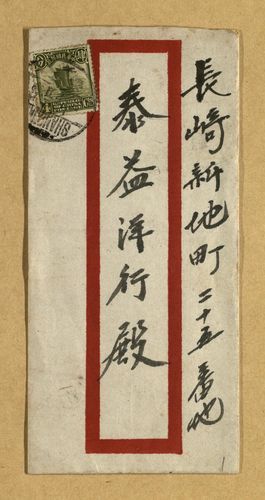 長崎新地町二十五番地
泰益洋行殿